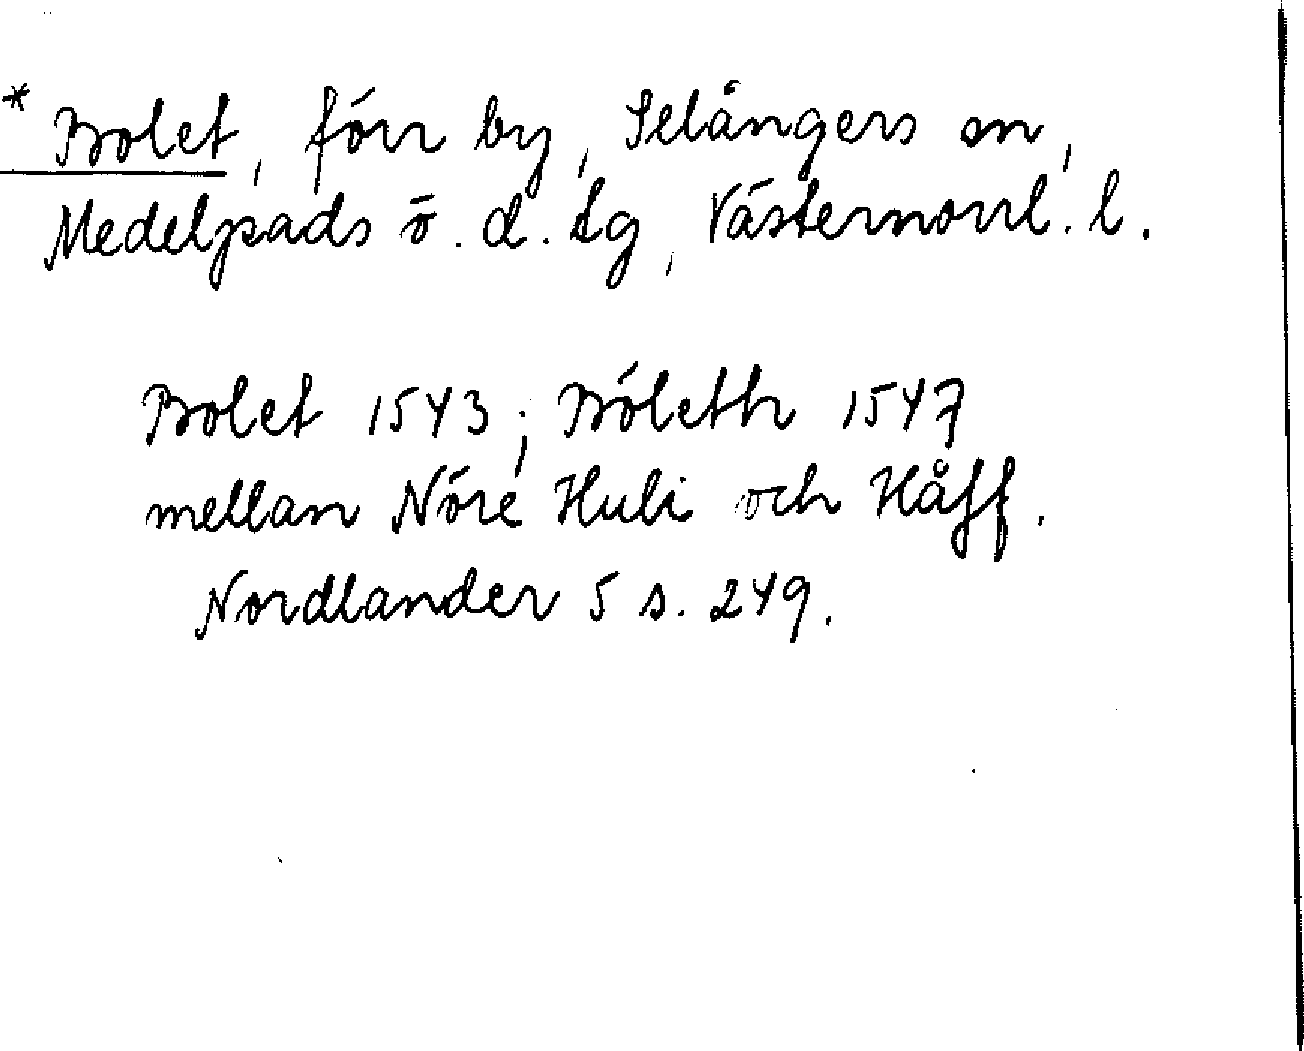 * Bolet, förr by, Selångers sn,
Medelpads ö. d. tg, Västernorrl. l.
Bolet 1543; Böleth 1547
mellan Nöre Huli och Håff.
Nordlander 5 s. 249.